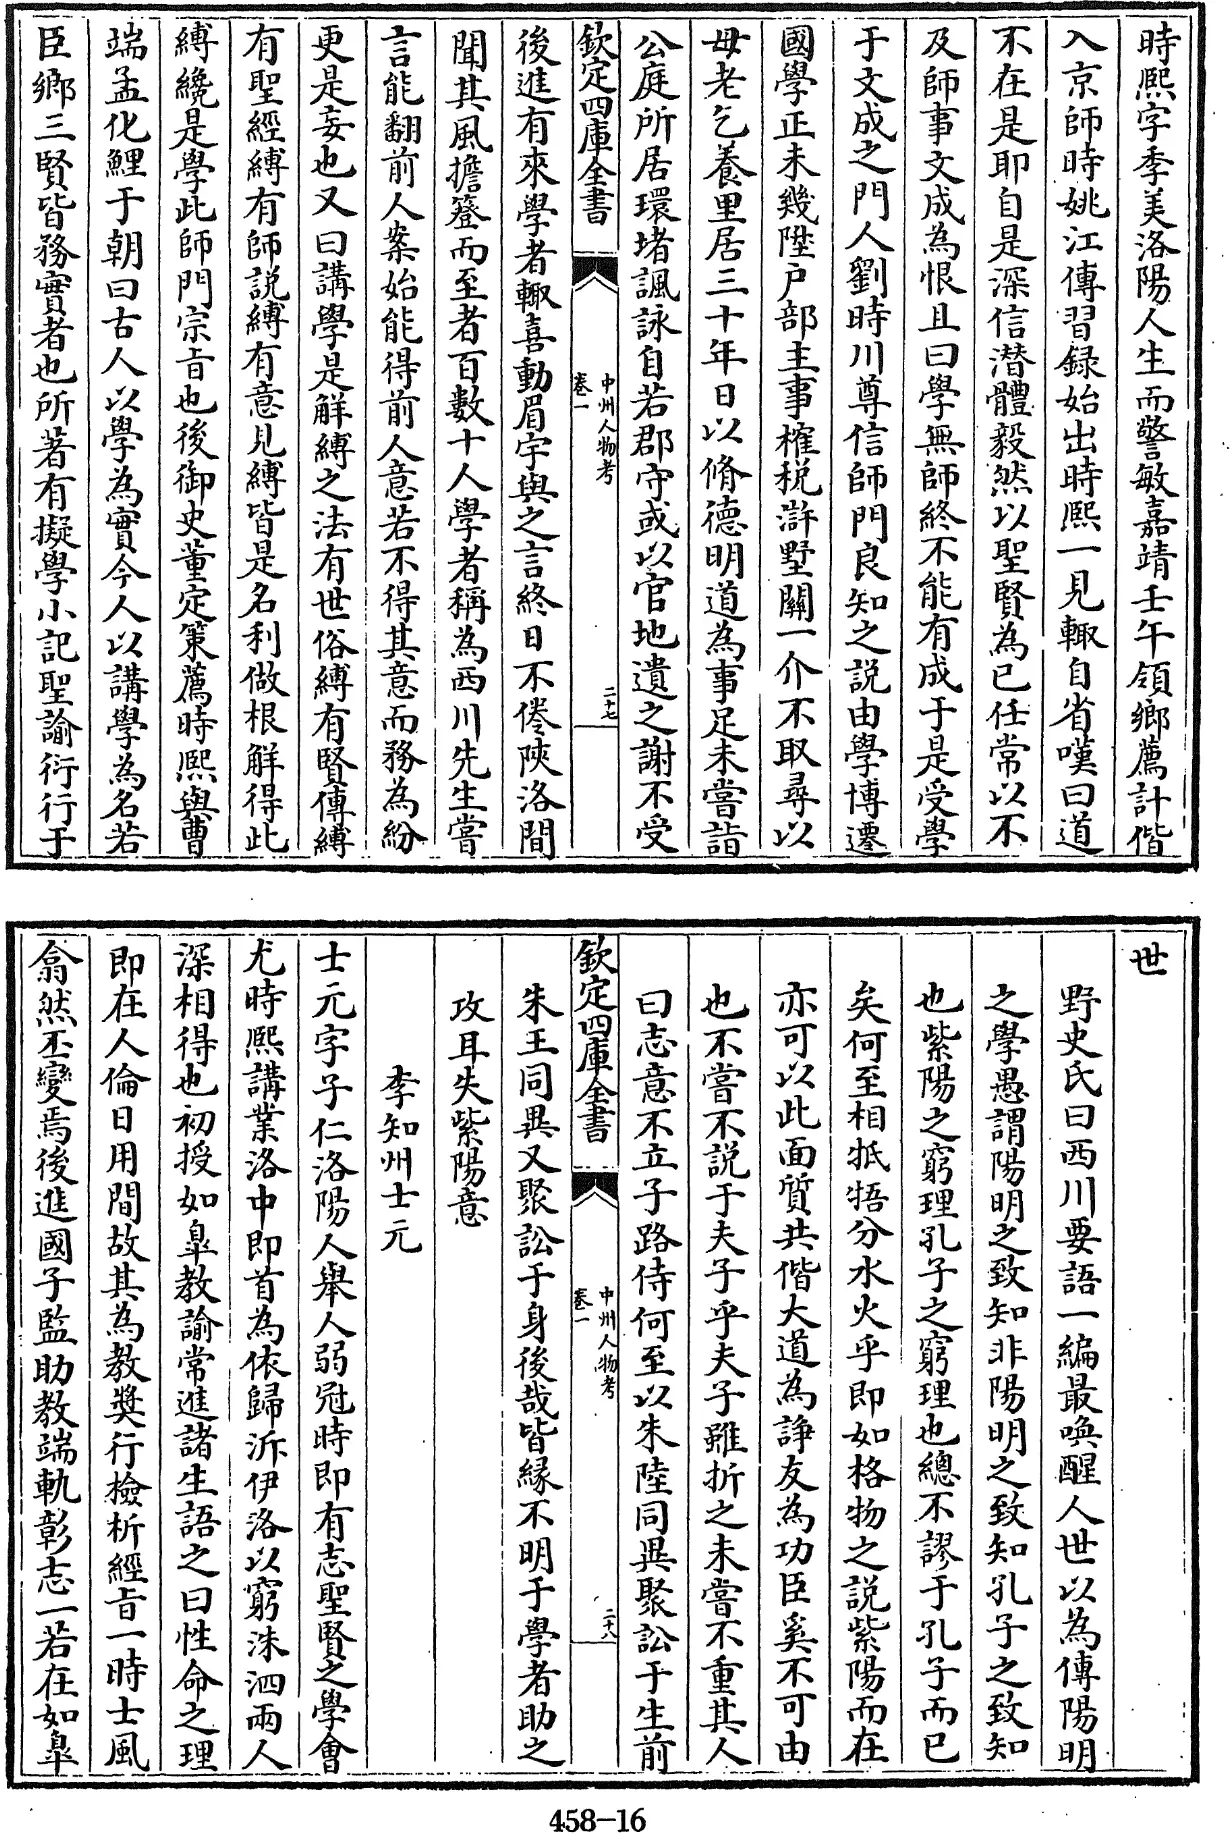 時熙字季美洛陽人生而警敏嘉靖壬午領鄉薦計偕
入京師時姚江傳習録始出時熙一見輙自省嘆曰道
不在是耶自是深信潛體毅然以聖賢為已任常以不
及師事文成為恨且曰學無師終不能有成于是受學
于文成之門人劉時川尊信師門良知之説由學博遷
國學正未幾陞户部主事榷税滸墅關一介不取尋以
母老乞養里居三十年日以脩德明道為事足未嘗詣
公庭所居環堵諷詠自若郡守或以官地遺之謝不受
欽定四庫全書
中州人物考
卷一
二十七
後進有來學者輙喜動眉宇與之言終日不倦陜洛間
聞其風擔簦而至者百數十人學者稱為西川先生嘗
言能翻前人案始能得前人意若不得其意而務為紛
更是妄也又曰講學是解縛之法有世俗縛有賢傳縛
有聖經縛有師説縛有意見縛皆是名利做根解得此
縛纔是學此師門宗旨也後御史董定策薦時熙與曹
端孟化鯉于朝曰古人以學為實今人以講學為名若
臣鄉三賢皆務實者也所著有擬學小記聖諭衍行于
世
野史氏曰西川要語一編最喚醒人世以為傳陽明
之學愚謂陽明之致知非陽明之致知孔子之致知
也紫陽之窮理孔子之窮理也總不謬于孔子而已
矣何至相牴牾分水火乎即如格物之説紫陽而在
亦可以此面質共偕大道為諍友為功臣奚不可由
也不嘗不説于夫子乎夫子雖折之未嘗不重其人
曰志意不立子路侍何至以朱陸同異聚訟于生前
欽定四庫全書
中州人物考
卷一
二十八
朱王同異又聚訟于身後哉皆緣不明于學者助之
攻耳失紫陽意
李知州士元
士元字子仁洛陽人舉人弱冠時即有志聖賢之學會
尤時熙講業洛中即首為依歸泝伊洛以窮洙泗兩人
深相得也初授如皐教諭常進諸生語之曰性命之理
即在人倫日用間故其為教奬行檢析經旨一時士風
翕然丕變焉後進國子監助教端軌彰志一若在如皐
458-16